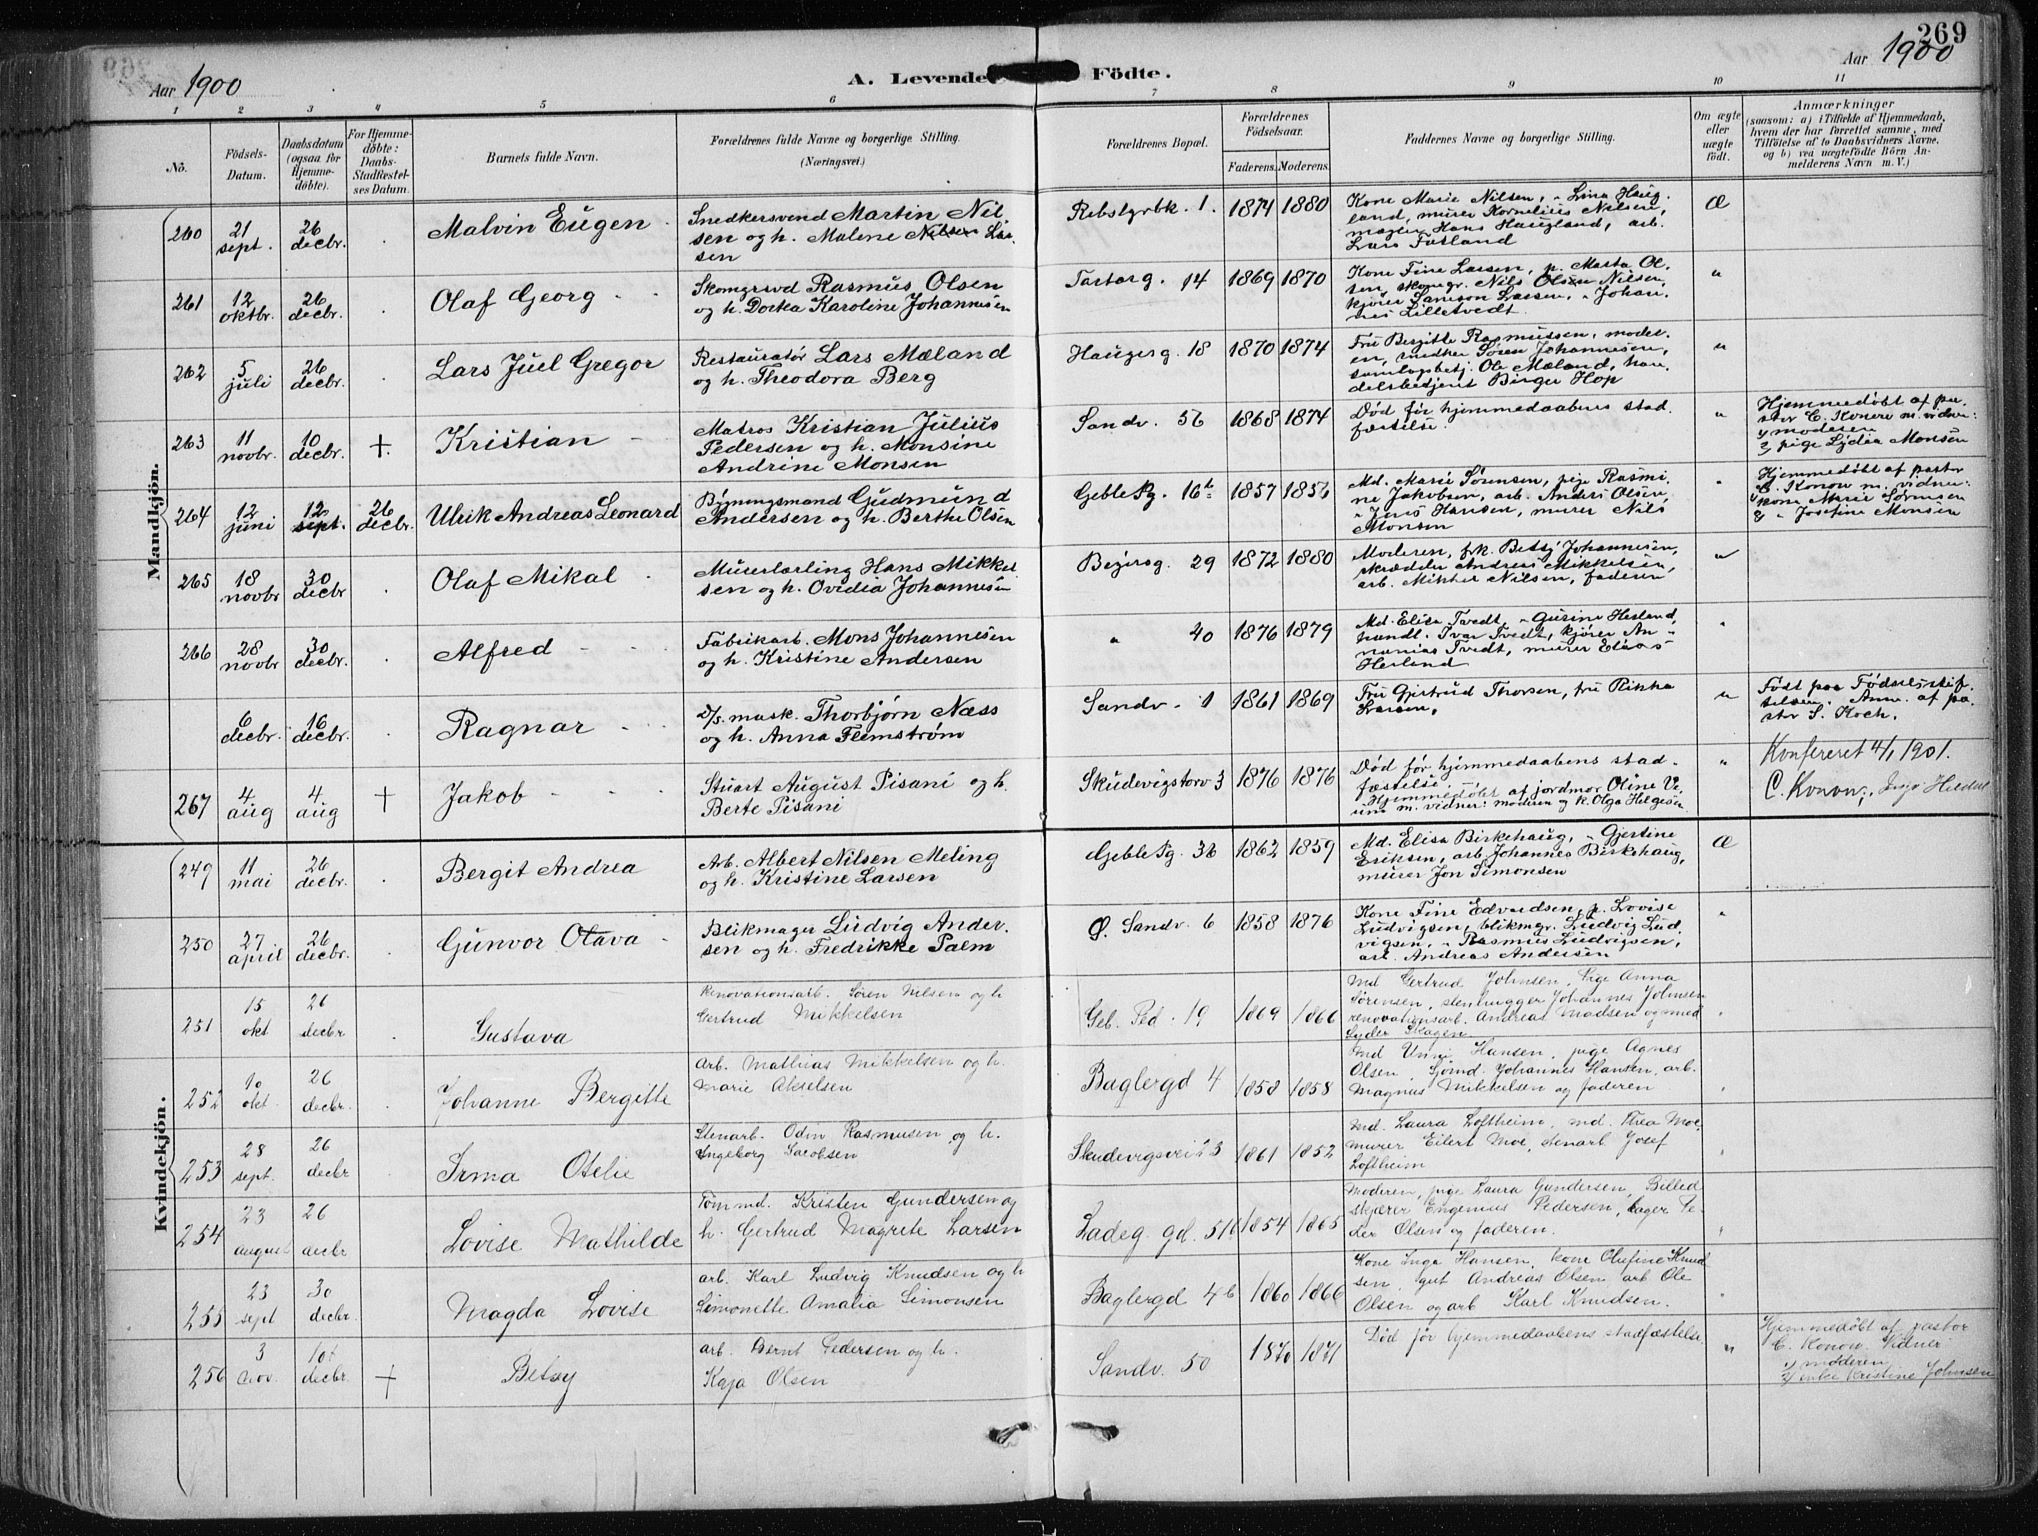 269
Aar 1900
A. Levende Födte.
Aar 1900
1 2 3 4 5 6 7 8 9 10 11
No.
Födsels-
Datum.
Daabsdatum
(ogsaa for
Hjemme-
döbte).
For Hjemme-
döbte:
Daabs-
Stadfæstel-
ses Datum.
Barnets fulde Navn.
Forældrenes fulde Navne og borgerlige Stilling.
(Næringsvei.)
Forældrenes Bopæl.
Forældrenes
Födselsaar.
Faderens. Moderens.
Faddernes Navne og borgerlige Stilling.
Om ægte
eller
uægte
födt.
Anmærkninger
(saasom: a) i Tilfælde af Hjemmedaab,
hvem der har forrettet samme, med
Tilföielse af to Daabsvidners Navne,
og b) ved uægtefödte Börn An-
melderens Navn m. V.)
Mandkjön.
260
21
sept.
26
decbr.
Malvin Eugen
Snedkersvend Martin Nil-
sen og h. Malene Nilsen Lar-
sen
Rebslgrbk. 1.
1874 1880
Kone Marie Nilsen, " Lina Haug-
land, murer Kornelius Nilsen,
mægler Hans Haugland, arb.
Lars Fosland
Æ
261
12
oktbr.
26
decbr.
Olaf Georg
Skomgrsvd Rasmus Olsen
og h. Dorka Karoline Johannesen
Tartarg. 14
1869 1870
Kone Fine Larsen, p. Marta Ol-
sen, skomgr. Nils Olsen Nilsen,
kjører Samson Larsen, " Johan-
nes Lilletvedt.
"
262
5
juli
26
decbr.
Lars Juel Gregor
Restauratør Lars Mæland
og h. Theodora Berg
Haugerg. 18
1870 1874
Fru Bergitte Rasmussen, moder-
en, snedker Søren Johannesen,
samlagsbetj. Ole Mæland, han-
delsbetjent Birger Hop
"
263
11
novbr.
10
decbr.
+.
Kristian
Matros Kristian Julius
Pedersen og h. Monsine
Andrine Monsen
Sandv. 56
1868 1874
Død før hjemmedaabens stad-
fæstelse.
"
Hjemmedøbt af pa-
stor C. Konow m. vidner:
1/ moderen
2/ pige Lydia Monsen
264
12
juni
12
sept.
26
decbr.
Ulrik Andreas Leonard
Bygningsmand Gudmund
Andersen og h. Berthe Olsen
Geble Pg. 16b
1857 1856
Md. Marie Sørensen, pige Rasmi-
ne Jakobsen, arb. Anders Olsen,
" Jens Hansen, murer Nils
Monsen
"
Hjemmedøbt af pastor
C. Konow m. vidner:
1/ kone Marie Sørensen
2/ " Josefine Monsen
265
18
novbr
30
decbr
Olaf Mikal
Murerlærling Hans Mikkel-
sen og h. Ovidia Johannesen
Bøgersg. 29
1872 1880
Moderen, frk. Betsy Johannesen,
skrædder Andreas Mikkelsen,
arb. Mikkel Nilsen, faderen
"
266
28
novbr
30
decbr.
Alfred
Fabrikarb. Mons Johannesen
og h. Kristine Andersen
" 40
1876 1879
Md. Elisa Tvedt, " Gurine Hesland,
handl. Ivar Tvedt, kjører An-
nanias Tvedt, murer Elias
Hesland
"
6
decbr.
16
decbr.
Ragnar
D/s. mask. Thorbjørn Næss
og h. Anna Flemstrøm
Sandv. 1
1861 1869
Fru Gjertrud Thorsen, fru Rikka
Larsen,
"
Født paa Fødselsstif-
telsen. Anm. af pa-
stor S. Koch.
267
4
aug
4
aug
+
Jakob
Stuart August Pisani og h.
Berte Pisani
Skudevigstorv 3
1876 1876
Død før hjemmedaabens stad-
fæstelse.
Hjemmedøbt af jordmor Oline Ve-
um m. vidner: moderen og k. Olga Helgesen
"
Konfereret 4/1 1901.
C. Konow.,
Kvindekjön.
249
11
mai
26
decbr.
Bergit Andrea
Arb. Albert Nilsen Meling
og h. Kristine Larsen
Geble Pg. 3b
1862 1859
Md. Elisa Birkehaug, " Gjertine
Eriksen, arb. Johannes Birkehaug,
murer Jon Simonsen
Æ
250
27
april
26
decbr.
Gunvor Otava
Blikmager Ludvig Ander-
sen og h. Fredrikke Palm
Ø. Sandv. 6
1858 1876
Kone Fine Edvardsen, p. Lovise
Ludvigsen, blikmgr. Ludvig Lud-
vigsen, " Rasmus Ludvigsen,
arb. Andreas Andersen
"
251
15
okt
26
decbr
Gustava
Renovationsarb. Søren Nilsen og h
Gertrud Mikkelsen
Geb. Ped 19
1869 1866
Md Gertrud Johnsen, Pige Anna
Sörensen, stenhugger Johannes Johnsen
renovationsarb. Andreas Madsen og
Lyder Skagen
"
252
10
okt.
26
decbr.
Johanne Bergitte
Arb. Mathias Mikkelsen og h.
Marie Akselsen
Baglergd 4
1858 1858
Md Unni Hansen, pige Agnes
Olsen Johannes Hansen, arb.
Magnus Mikkelsen og faderen
"
253
28
sept.
26
decbr
Irma Otelie
Stenarb. Odin Rasmusen og h.
Ingeborg Jacobsen
Skudevigsvei 23
1861 1852
Md. Laura Loftheim, md. Thea Moe,
murer Eilert Moe, stenarb Josef
Loftheim
"
254
23
august
26
decbr
Lovise Mathilde
Tømmd. Kristen Gundersen og
h. Gertrud Magrete Larsen
Ladeg. gd. 51b
1854 1865
Moderen, pige Laura Gundersen, Billed-
skjærer Engenius Pedersen, bager Pe-
der Olsen og faderen.
"
255
23
sept
30
decbr.
Magda Lovise
arb. Karl Ludvig Knudsen og h
Simonette Amalia Simonsen
Baglergd 4b
1860 1866
Kone Inga Hansen, kone Olufine Knud-
sen, gut Andreas Olsen, arb Ole
Olsen og arb Karl Knudsen.
"
256
3
nov.
10
decbr.
+
Betsy
arb. Bernt Pedersen og h.
Kaja Olsen
Sandv. 50
1870 1871
Död för hjemmedaabens stadfæstelse
"
Hjemmedøbt af pastor
C. Konow. Vidner
1/ moderen
2/ enke Kristine Johnsen